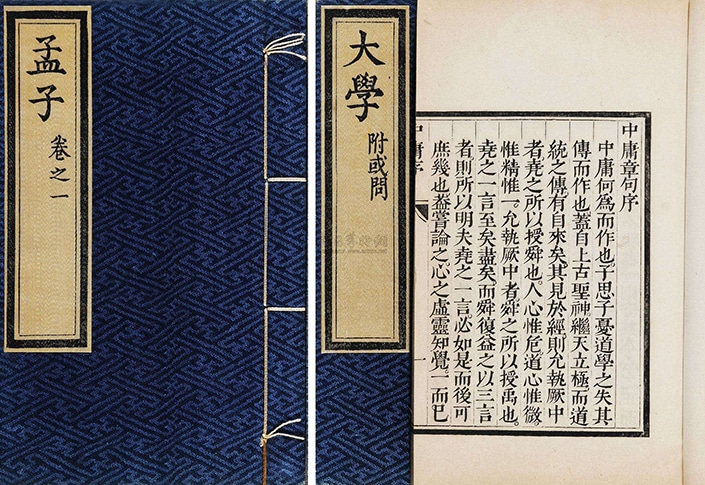 孟子
卷之一
大學
附或問
中庸章句序
中庸何爲而作也子思子憂道學之失其
傳而作也蓋自上古聖神繼天立極而道
統之傳有自來矣其見於經則允執厥中
者堯之所以授舜也人心惟危道心惟微
惟精惟一允執厥中者舜之所以授禹也
堯之一言至矣盡矣而舜復益之以三言
者則所以明夫堯之一言必如是而後可
庶幾也葢嘗論之心之虛靈知覺一而已
中庸序
一